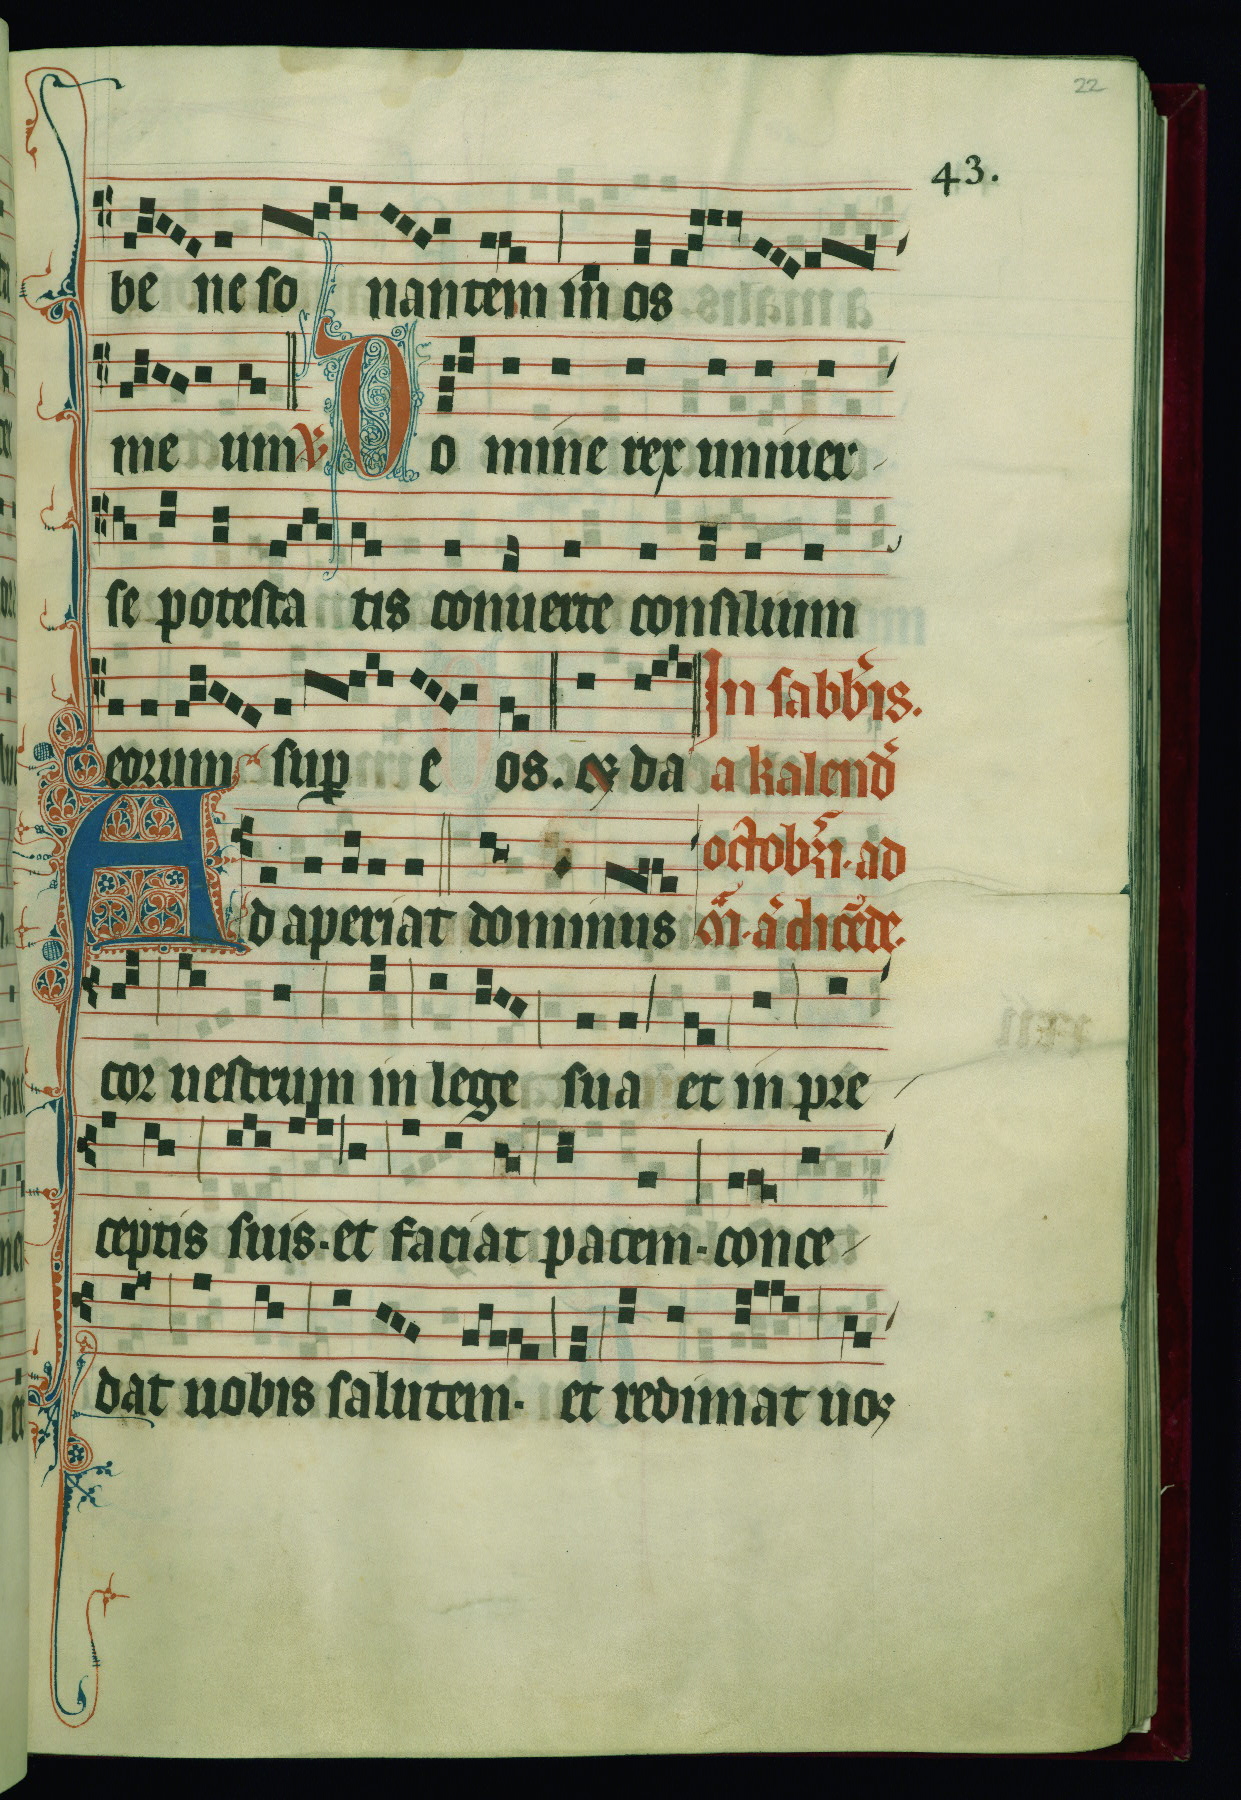 22
43.
be ne so nantem in os
me um ℣. Do mine rex univer-
se potesta tis converte consilium
eorum sup e os. & da
In sabb̃is.
a kalend̃
Ad aperiat dominus
octobr̃i. ad
cor vestrum in lege sua et in pre-
ceptis suis. et faciat pacem. conce-
dat vobis salutem. et redimat vos